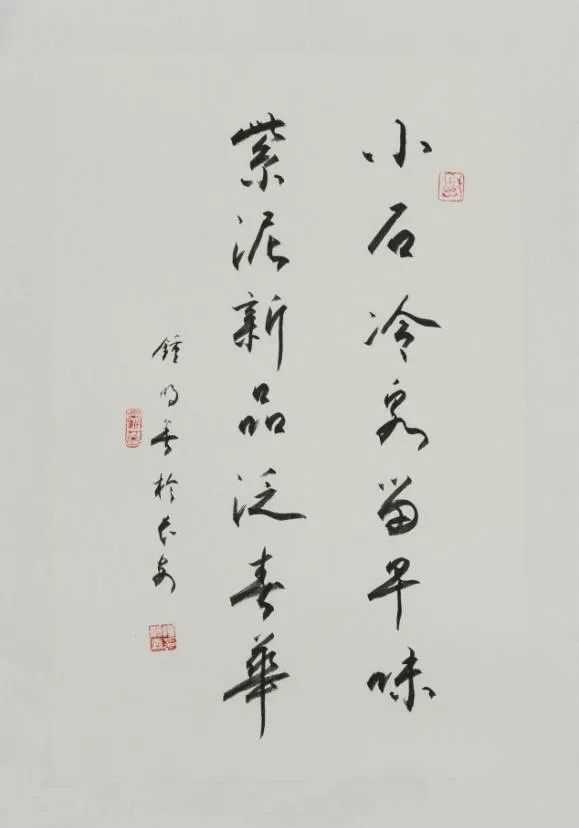 小石冷泉留早味
紫泥新品泛春華
鍾明善於長安